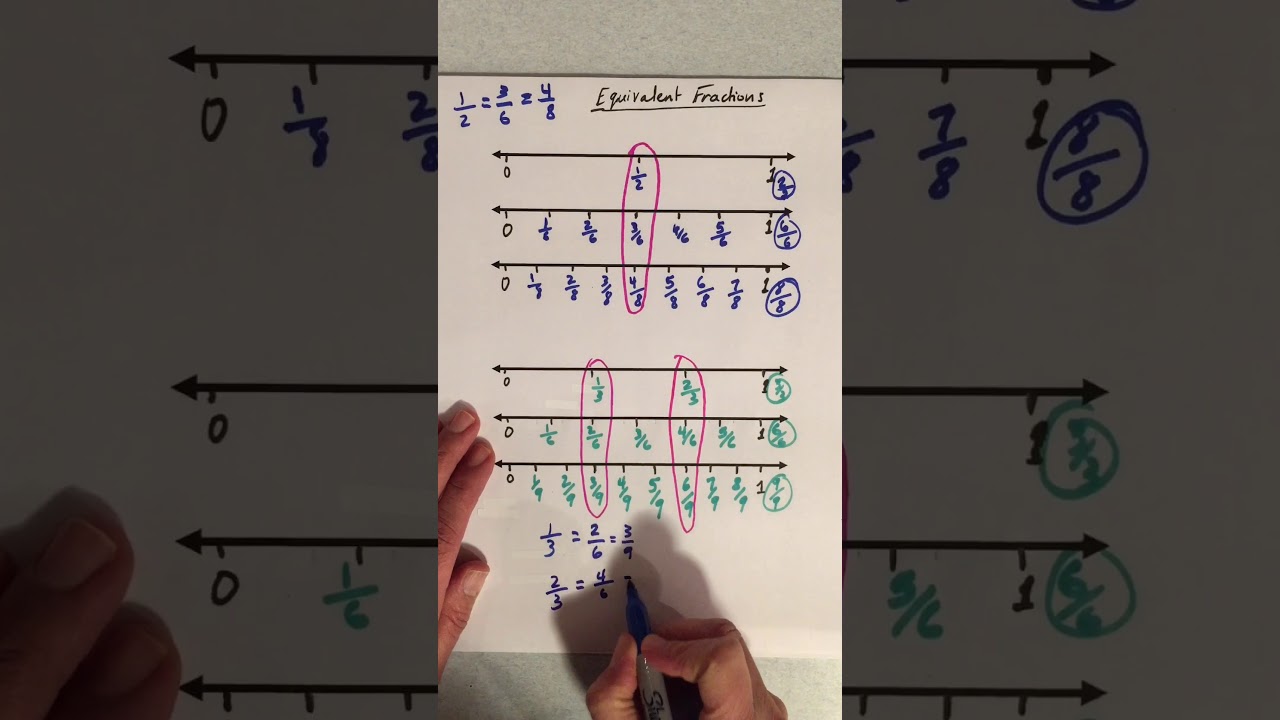 1/2 = 3/6 = 4/8
Equivalent Fractions
0 1/2 1
0 1/6 2/6 3/6 4/6 5/6 1 6/6
0 1/8 2/8 3/8 4/8 5/8 6/8 7/8 1 8/8
0 1/3 2/3 1
0 1/6 2/6 3/6 4/6 5/6 1 6/6
0 1/9 2/9 3/9 4/9 5/9 6/9 7/9 8/9 1 9/9
1/3 = 2/6 = 3/9
2/3 = 4/6 =